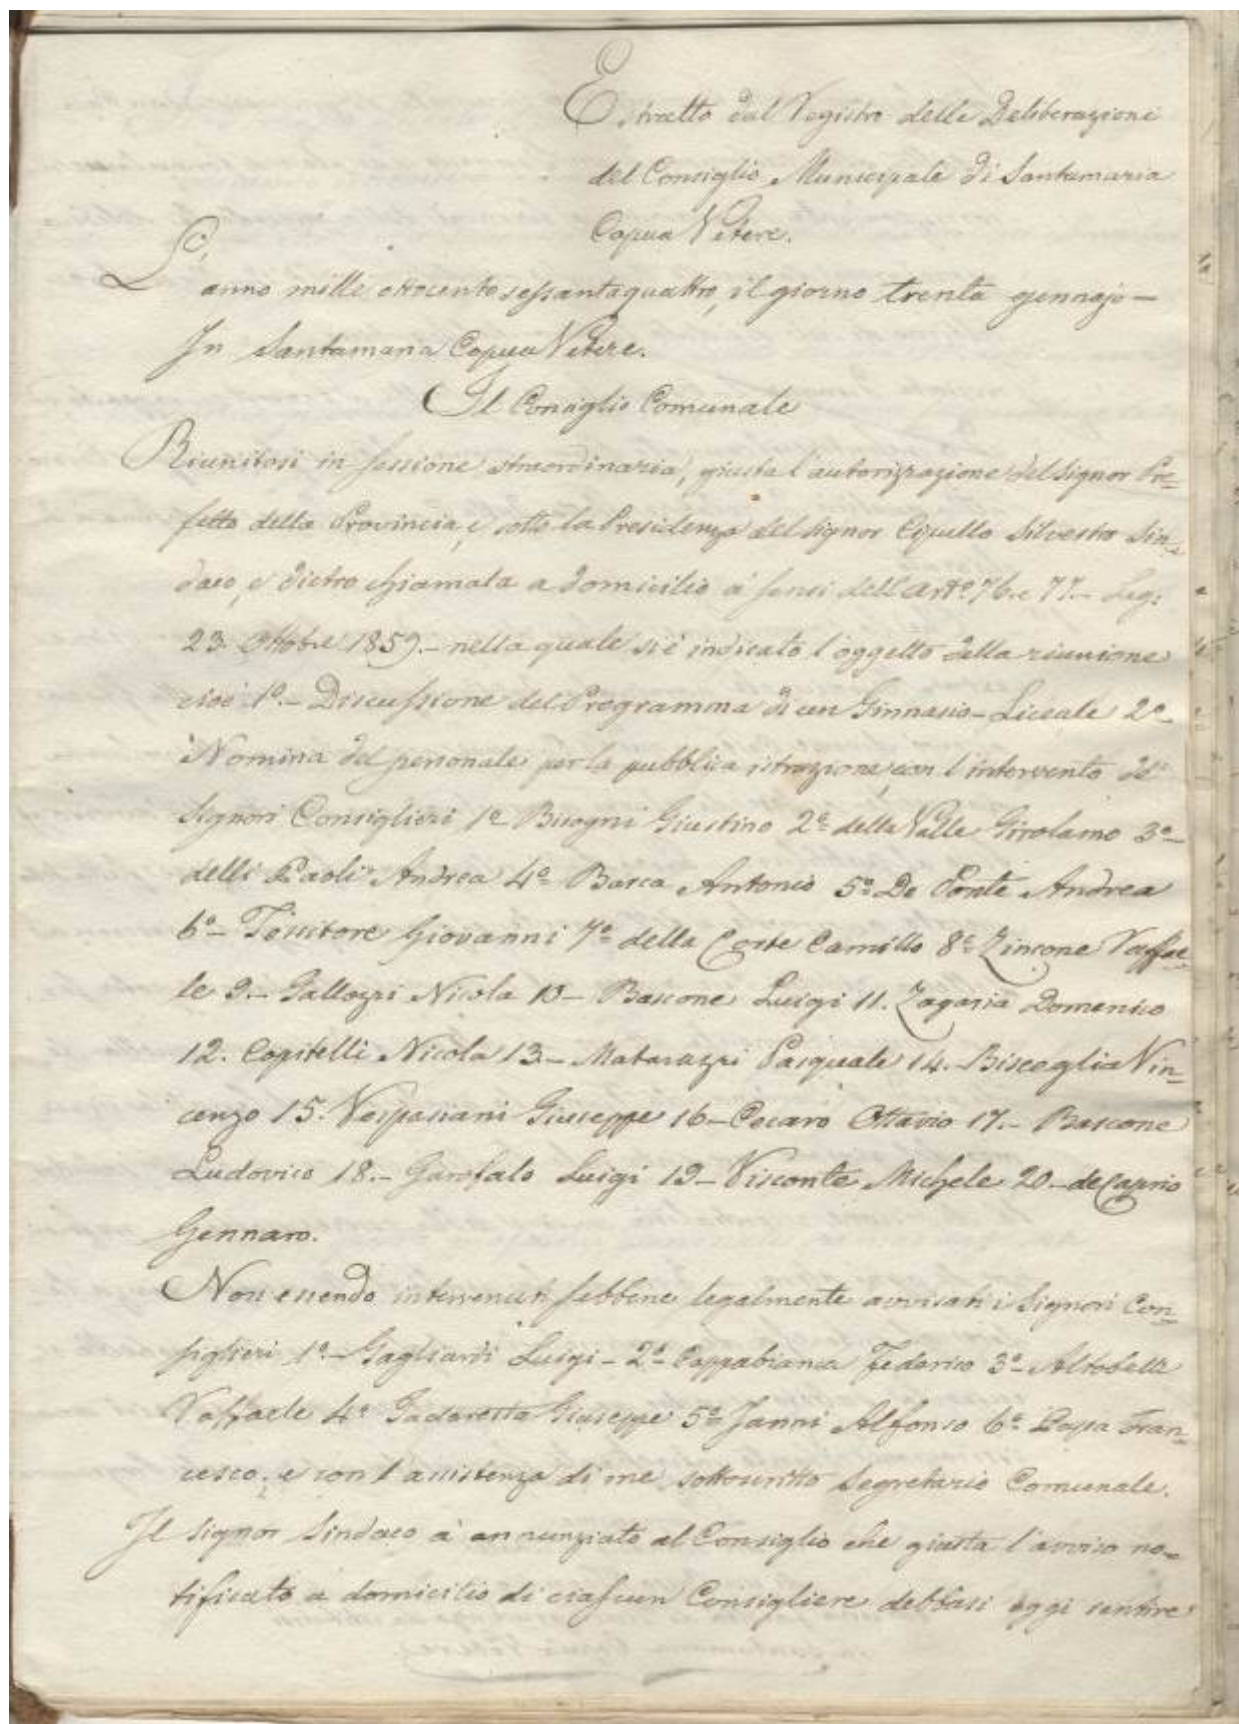 Estratto dal Registro delle Deliberazioni
del Consiglio Municipale di Santamaria
Capua Vetere.
L'
anno mille ottocento sessantaquattro, il giorno trenta gennajo —
In Santamaria Capua Vetere.
Il Consiglio Comunale
Riunitosi in sessione straordinaria, giusta l'autorizzazione del Signor Pre=
fetto della Provincia, e sotto la Presidenza del Signor Cipullo Silvestro Sin=
daco, e dietro chiamata a domicilio a' sensi dell'arto. 76. e 77.- Leg:
23. Ottobre 1859.- nella quale si è indicato l'oggetto della riunione
cioè 1º.- Discussione del Programma di un Ginnasio-Liceale 2º-
Nomina del personale per la pubblica istruzione, con l'intervento de'
Signori Consiglieri 1º Bisogni Giustino 2º della Valle Girolamo 3º-
delli Paoli Andrea 4º Barca Antonio 5º De Ponte Andrea
6º- Tessitore Giovanni 7º della Corte Camillo 8º Zincone Raffae=
le 9.- Gallozzi Nicola 10- Bascone Luigi 11. Zagaria Domenico
12. Capitelli Nicola 13.- Matarazzi Pasquale 14.- Bisceglia Vin=
cenzo 15. Vespasiani Giuseppe 16- Cecaro Ottavio 17.- Bascone
Ludovico 18.- Garofalo Luigi 19- Visconte Michele 20.- de Caprio
Gennaro.
Non essendo intervenuti sebbene legalmente avvisati i Signori Con=
siglieri 1º.- Gagliardi Luigi - 2º Cappabianca Federico 3º- Altobelli
Raffaele 4º Gadaretta Giuseppe 5º Janni Alfonso 6º Papa Fran=
cesco; e con l'assistenza di me sottoscritto Segretario Comunale.
Il Signor Sindaco à annunziato al Consiglio che giusta l'avviso no=
tificato a domicilio di ciascun Consigliere debbasi oggi sentire